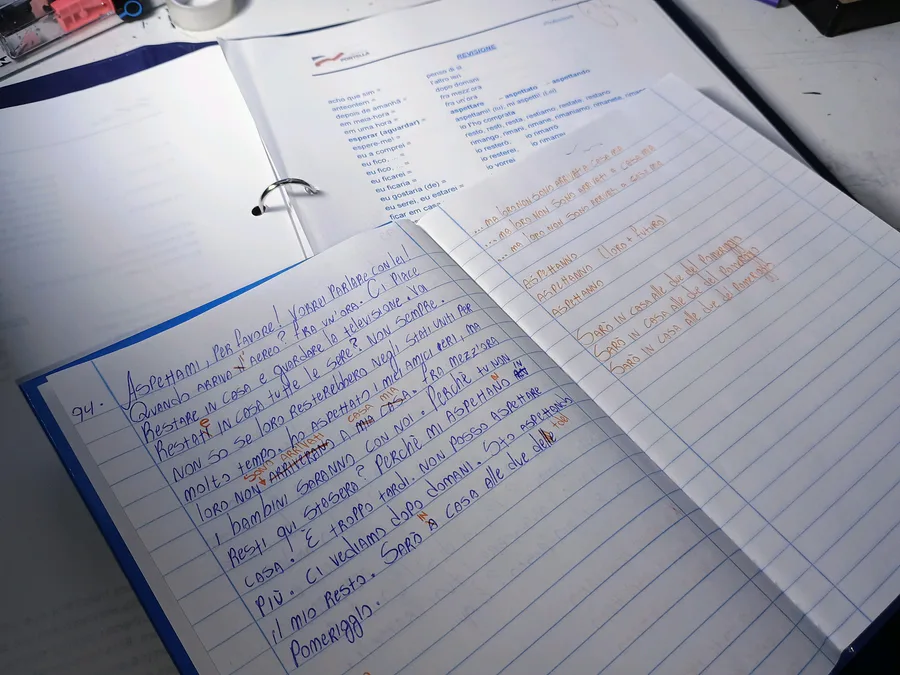 REVISIONE
echo que sim =
anteontem =
depois de amanhã =
em meia-hora =
em uma hora =
esperar (aguardar) =
espere-me! =
eu a comprei =
eu fico, ... =
eu fico, ... =
eu ficarei =
eu ficaria =
eu gostaria (de) =
eu serei, eu estarei =
ficar em casa
penso di sì
l'altro ieri
dopo domani
fra mezz'ora
fra un'ora
aspettare – aspettato – aspettando
aspettami (tu), mi aspetti! (Lei)
io l'ho comprata
resto, resti, resta, restiamo, restate, restano
rimango, rimani, rimane, rimaniamo, rimanete, riman
io resterò, io rimarrò
io resterei, io rimarr
io vorrei
94. ASPETTAMI, PER FAVORE! VORREI PARLARE CON LEI!
QUANDO ARRIVA L' AEREO? FRA UN'ORA. CI PIACE
RESTARE IN CASA E GUARDARE LA TELEVISIONE. VOI
RESTATE IN CASA TUTTE LE SERE? NON SEMPRE.
NON SO SE LORO RESTEREBBERO NEGLI STATI UNITI PER
MOLTO TEMPO. HO ASPETTATO I MIEI AMICI IERI, MA
SONO ARRIVATI CASA MIA
LORO NON ARRIVERANO A MIA CASA. FRA MEZZ'ORA
I BAMBINI SARANNO CON NOI. PERCHÈ TU NON
RESTI QUI STASERA? PERCHÈ MI ASPETTANO
CASA! È TROPPO TARDI. NON POSSO ASPETTARE
PIÙ. CI VEDIAMO DOPO DOMANI. STO ASPETTANDO
IL MIO RESTO. SARÒ IN A CASA ALLE DUE DEL
POMERIGGIO.
... MA LORO NON SONO ARRIVATI A CASA MIA
... MA LORO NON SONO ARRIVATI A CASA MIA
... MA LORO NON SONO ARRIVATI A CASA MIA
ASPETTANNO
ASPETTANNO (LORO + FUTURO)
ASPETTANNO
SARÒ IN CASA ALLE DUE DEL POMERIGGIO
SARÒ IN CASA ALLE DUE DEL POMERIGGIO
SARÒ IN CASA ALLE DUE DEL POMERIGGIO